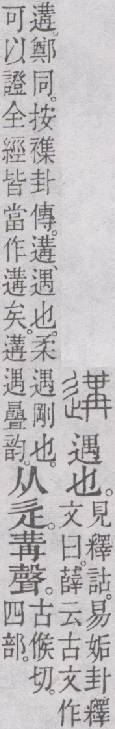 遘 遇也。
見釋詁。易姤卦釋
文曰。薛云古文作
遘。鄭同。按襍卦傳。遘、遇也。柔遇剛也。
可以證全經皆當作遘矣。遘遇曡韵。
从辵。冓聲。
古候切。
四部。